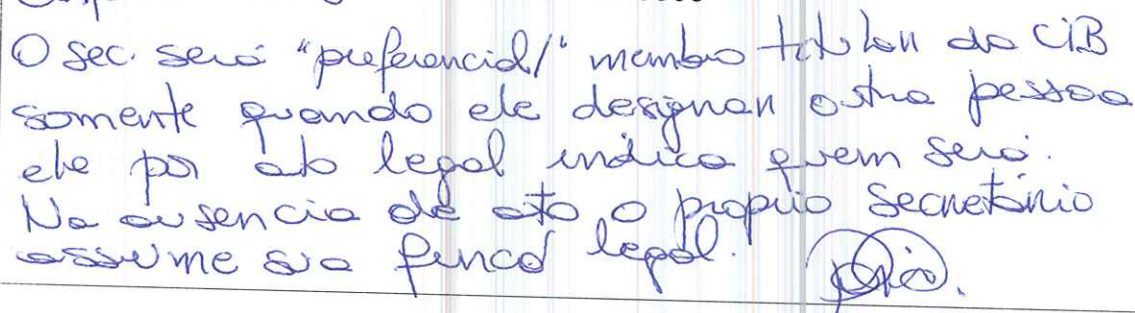 O sec. será "preferencial/" membro titular da CIB
somente quando ele designar outra pessoa
ele por ato legal indica quem será.
Na ausencia de ato, o proprio Secretário
assume sua funcão legal.